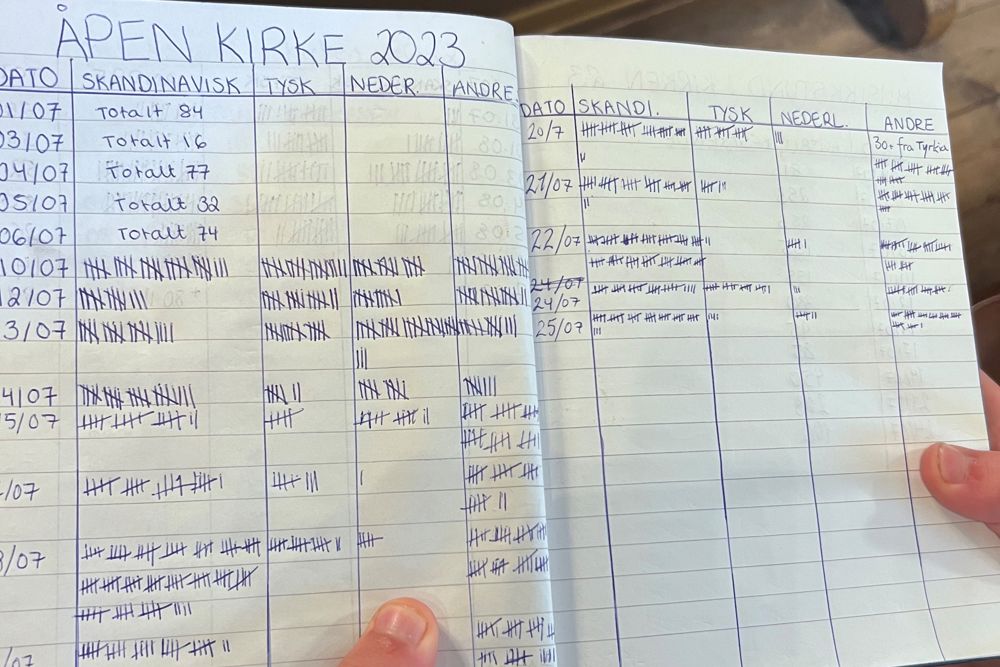 ÅPEN KIRKE 2023
DATO SKANDINAVISK TYSK NEDER. ANDRE
01/07 Totalt 84
03/07 Totalt 16
04/07 Totalt 77
05/07 Totalt 32
06/07 Totalt 74
10/07
12/07
3/07
4/07
5/07
/07
/07
/07
DATO SKANDI. TYSK NEDERL. ANDRE
20/7 30+ fra Tyrkia
21/07
22/07
24/07
24/07
25/07